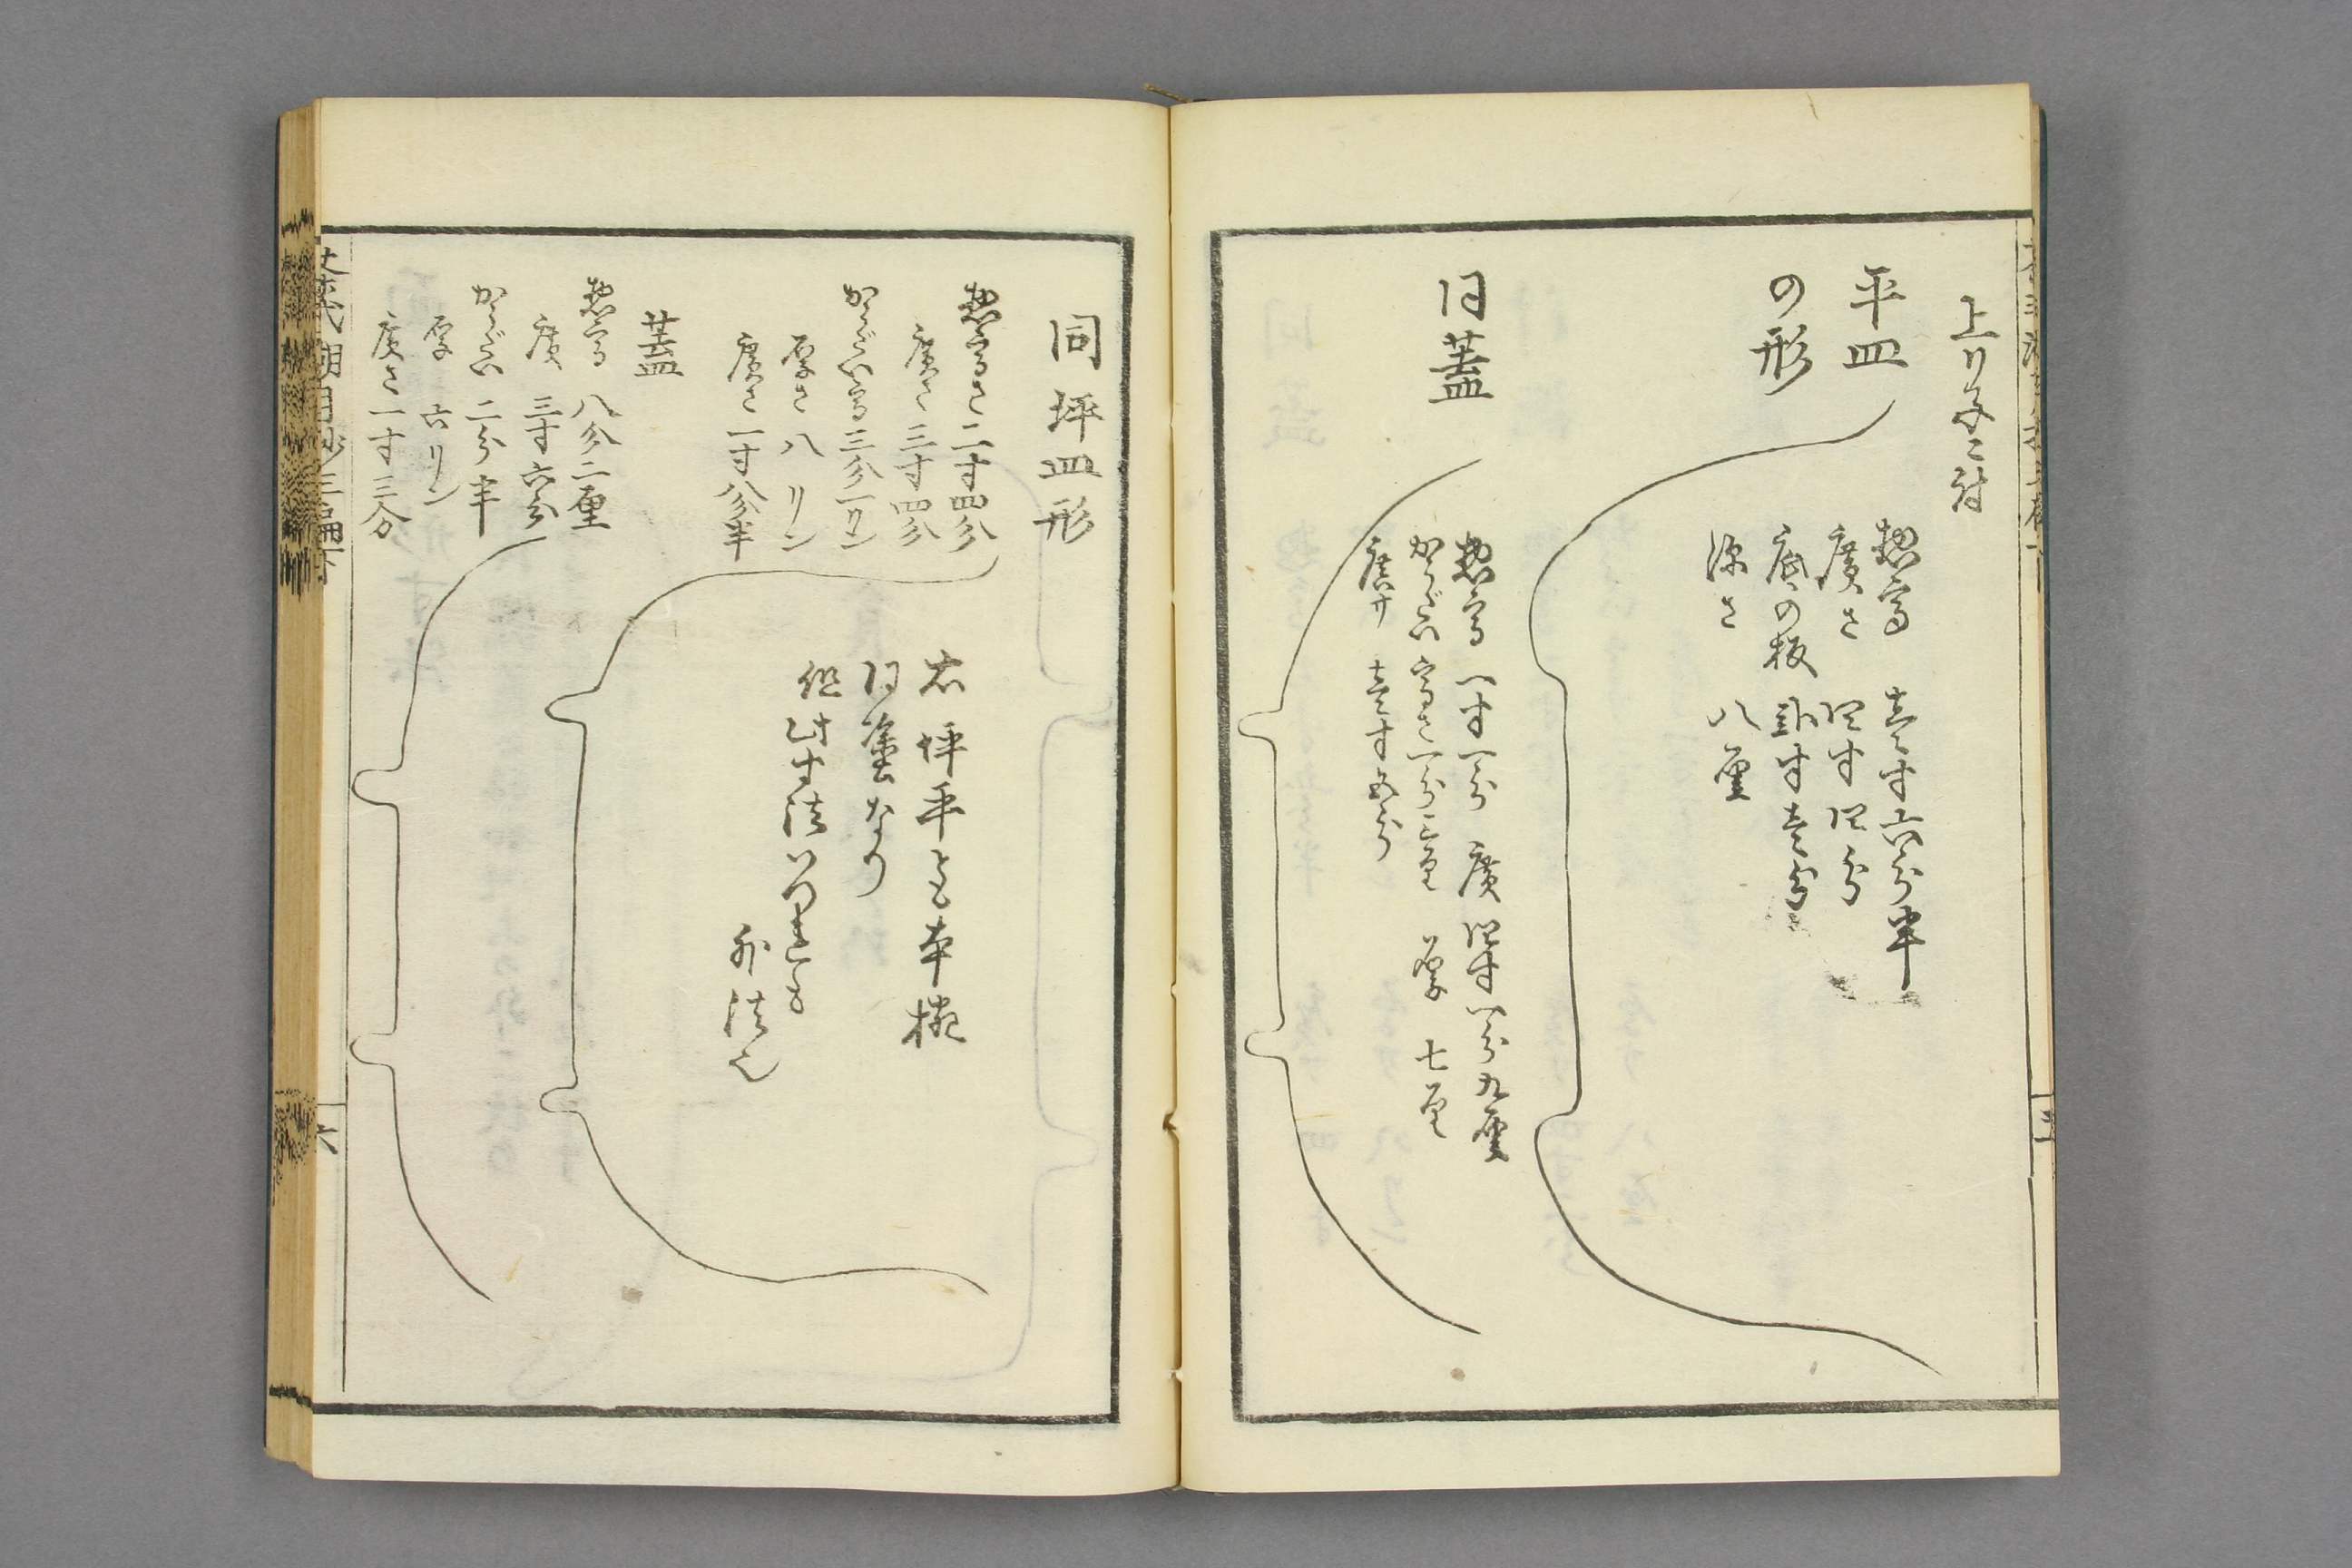 平皿
の形
惣高 壱寸六分半
廣さ 四寸四分
底の板 弐寸壱分
深さ 八厘
同蓋
惣高 一寸一分 廣 四寸一分九厘
かうだい 高さ一分二厘 厚 七厘
廣サ 壱寸五分
同坪皿形
惣高さ二寸四分
廣さ 三寸四分
かうだい高三分一リン
厚さ 八リン
廣さ一寸八分半
右坪平とも本椀
同塗なり
但此寸法いつれも
外法也
蓋
惣高 八分二厘
廣 三寸六分
かうだい 二分半
厚 六リン
廣さ一寸三分
六